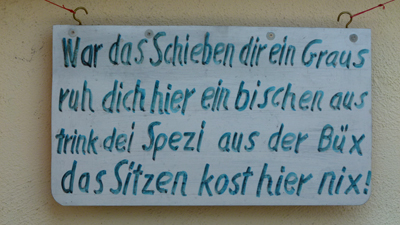 War das Schieben dir ein Graus
ruh dich hier ein bischen aus
trink dei Spezi aus der Büx
das Sitzen kost hier nix!